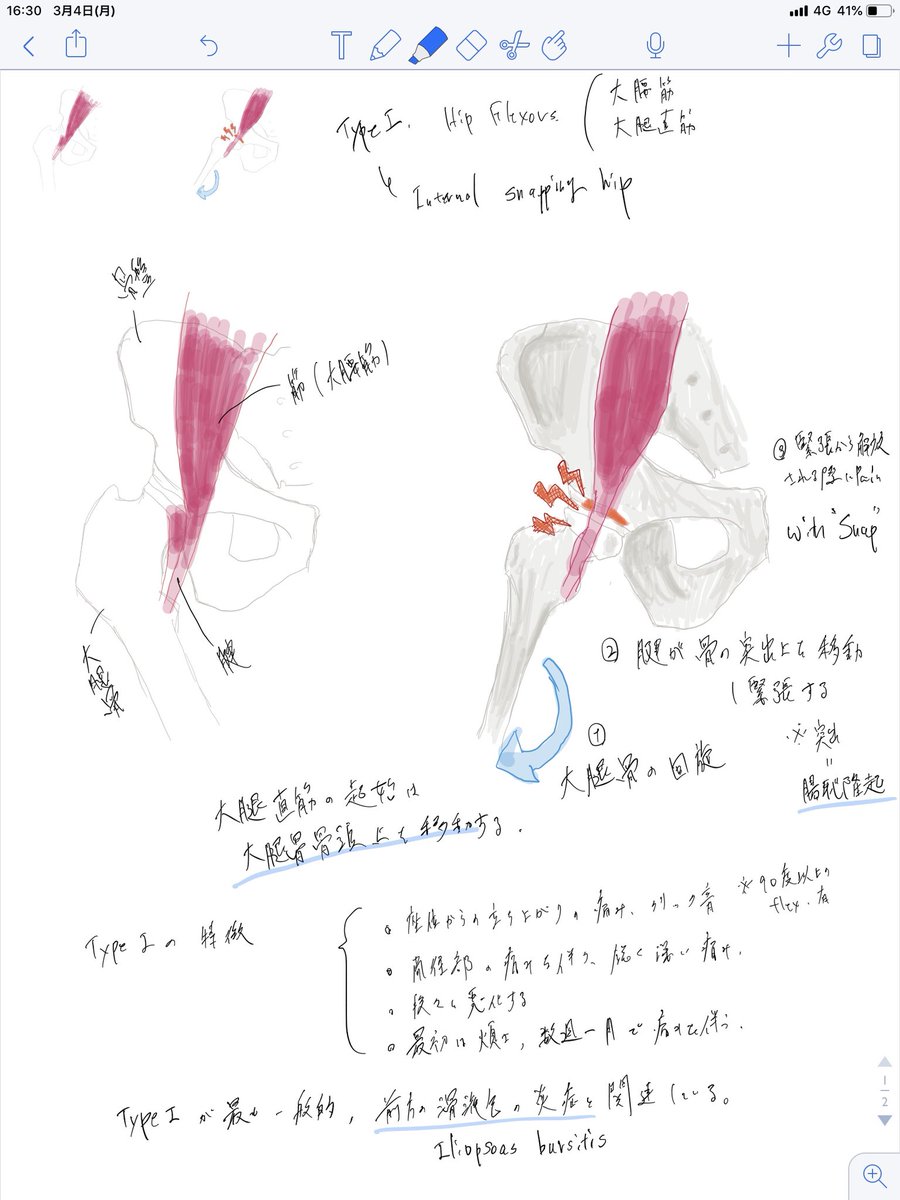 16:30 3月4日(月)
4G 41%
T
Type I. Hip Flexors
大腰筋
大腿直筋
↳ Internal snapping hip
骨盤
筋(大腰筋)
大腿骨
腱
③ 緊張から解放
される際にPain
with "Snap"
② 腱が骨の突出上を移動
し緊張する
※突出
=
腸恥隆起
① 大腿骨の回旋
大腿直筋の起始は
大腿骨骨頭上を移動する.
Type Iの特徴
座位からの立ち上がりの痛み、クリック音
※90度以上の
flex. 有
鼠径部の痛みを伴う、鈍く深い痛み.
段々と悪化する
最初は煩く, 数週〜月で痛みを伴う.
Type Iが最も一般的, 前方の滑液包の炎症と関連している。
Iliopsoas bursitis
1
2